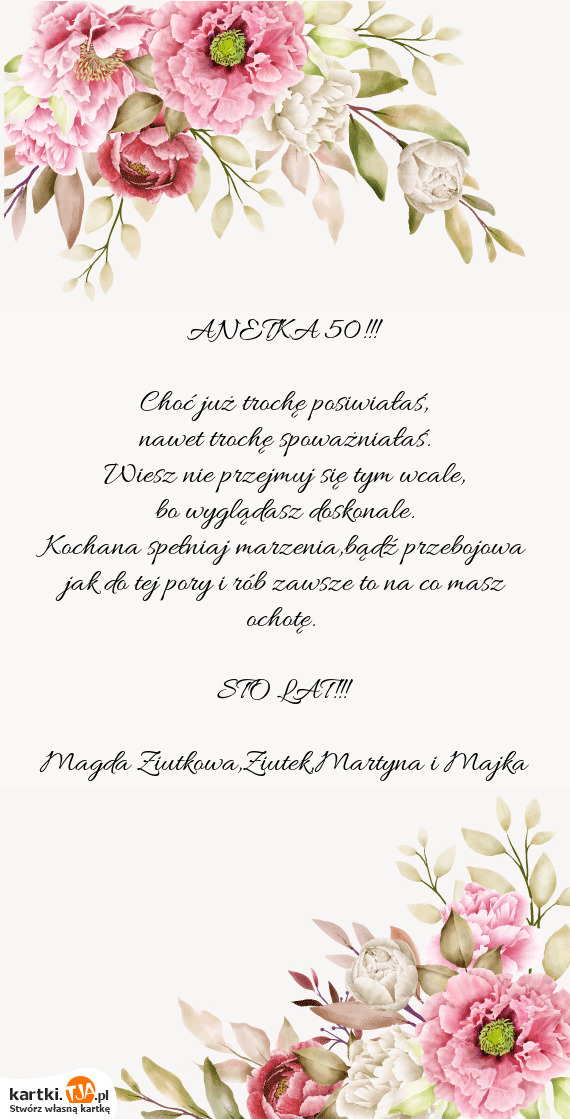 ANETKA 50 !!!
Choć już trochę posiwiałaś,
nawet trochę spoważniałaś.
Wiesz nie przejmuj się tym wcale,
bo wyglądasz doskonale.
Kochana spełniaj marzenia,bądź przebojowa
jak do tej pory i rób zawsze to na co masz
ochotę.
STO LAT!!!
Magda Ziutkowa,Ziutek,Martyna i Majka
kartki.TJA.pl
Stwórz własną kartkę